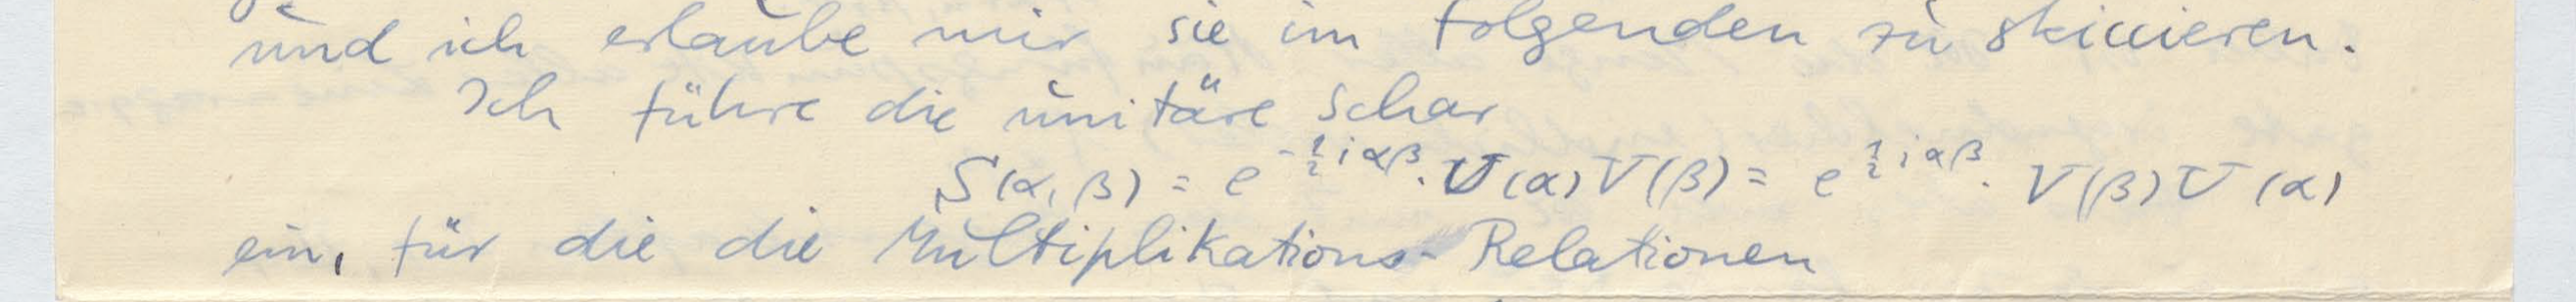 und ich erlaube mir sie im folgenden zu skiccieren.
Ich führe die unitäre Schar
S(α, β) = e^{-½iαβ}. U(α)V(β) = e^{½iαβ}. V(β)U(α)
ein, für die die Multiplikations-Relationen